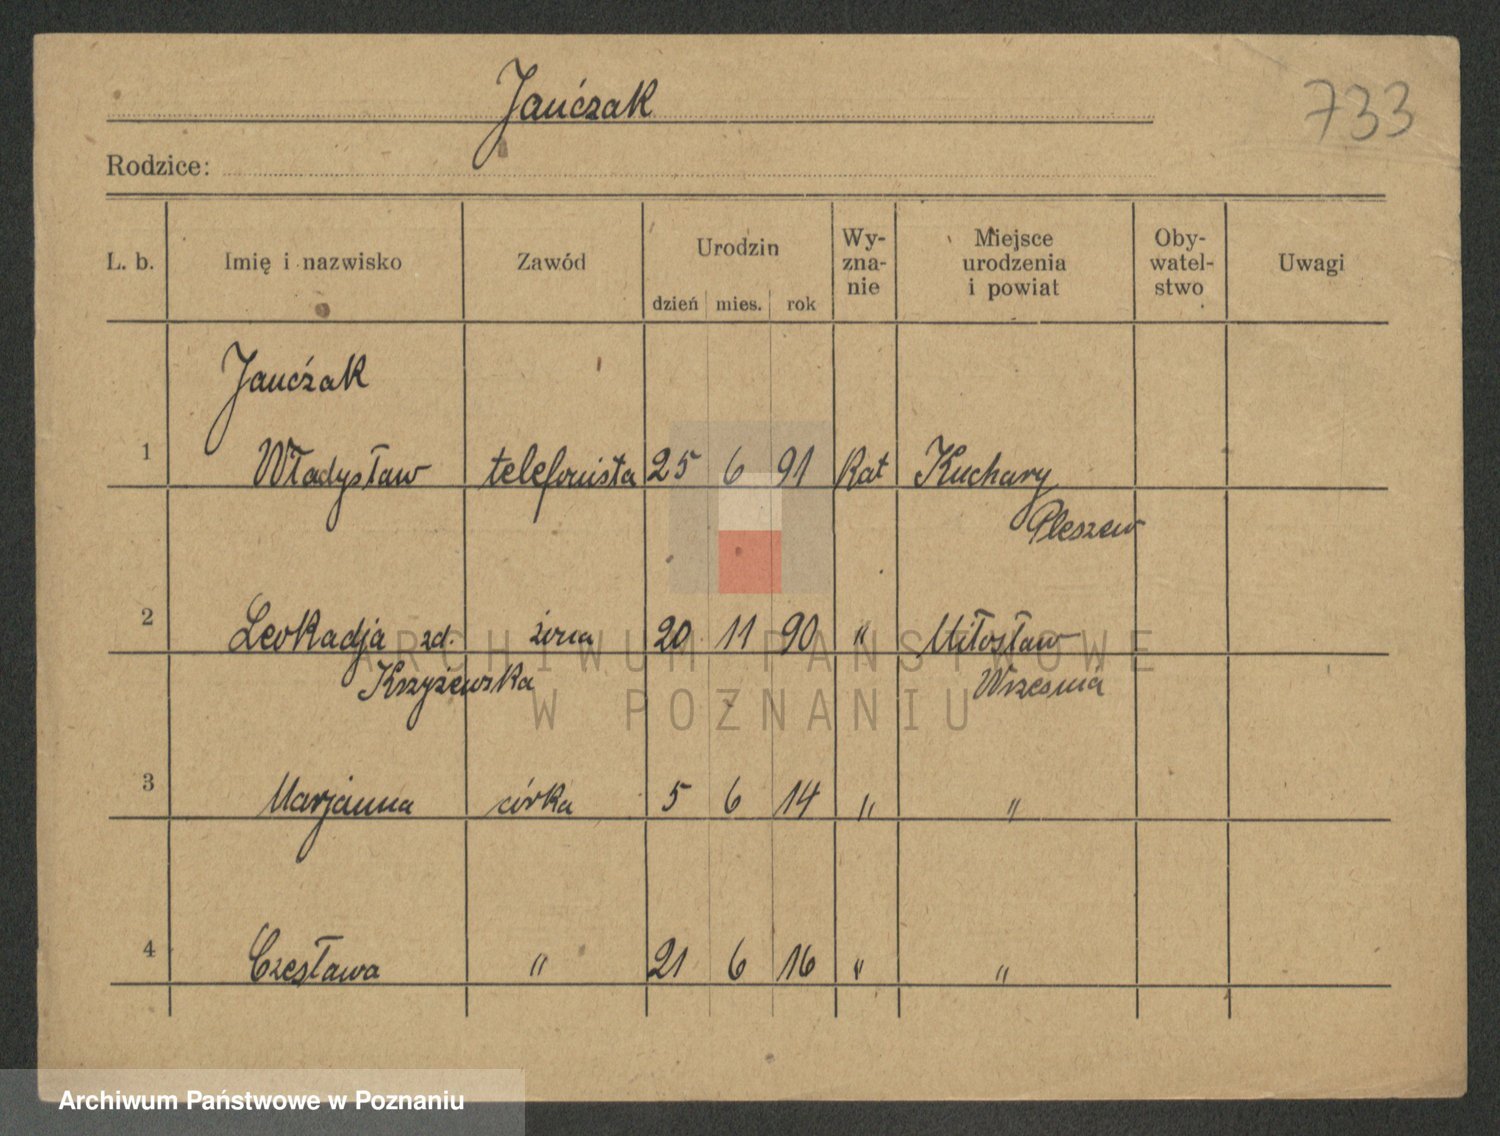 Jańczak
733
Rodzice:
L. b. Imię i nazwisko Zawód Urodzin dzień mies. rok Wy-zna-nie Miejsce urodzenia i powiat Oby-watel-stwo Uwagi
Jańczak
1 Władysław telefonista 25 6 91 Kat Kuchary
Pleszew
2 Leokadja zd. żona 20 11 90 " Miłosław
Krzyżewska Wrześnía
3 Marjanna córka 5 6 14 " "
4 Czesława " 21 6 16 " "
ARCHIWUM PAŃSTWOWE
W POZNANIU
Archiwum Państwowe w Poznaniu